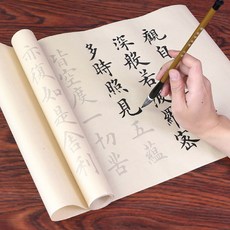 觀自
深般若波羅蜜
多時照見五蘊
皆空度一切苦
亦復如是舍利